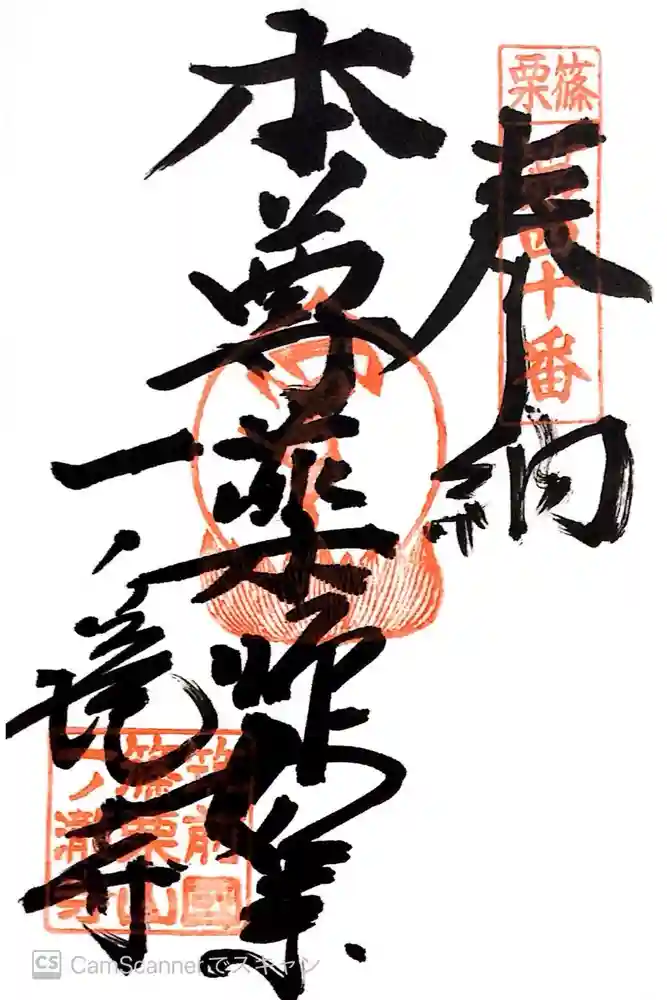 篠栗
第四十番
奉納
本尊薬師如来
一ノ瀧寺
筑前國
篠栗山
一ノ瀧寺
CS CamScanner でスキャン